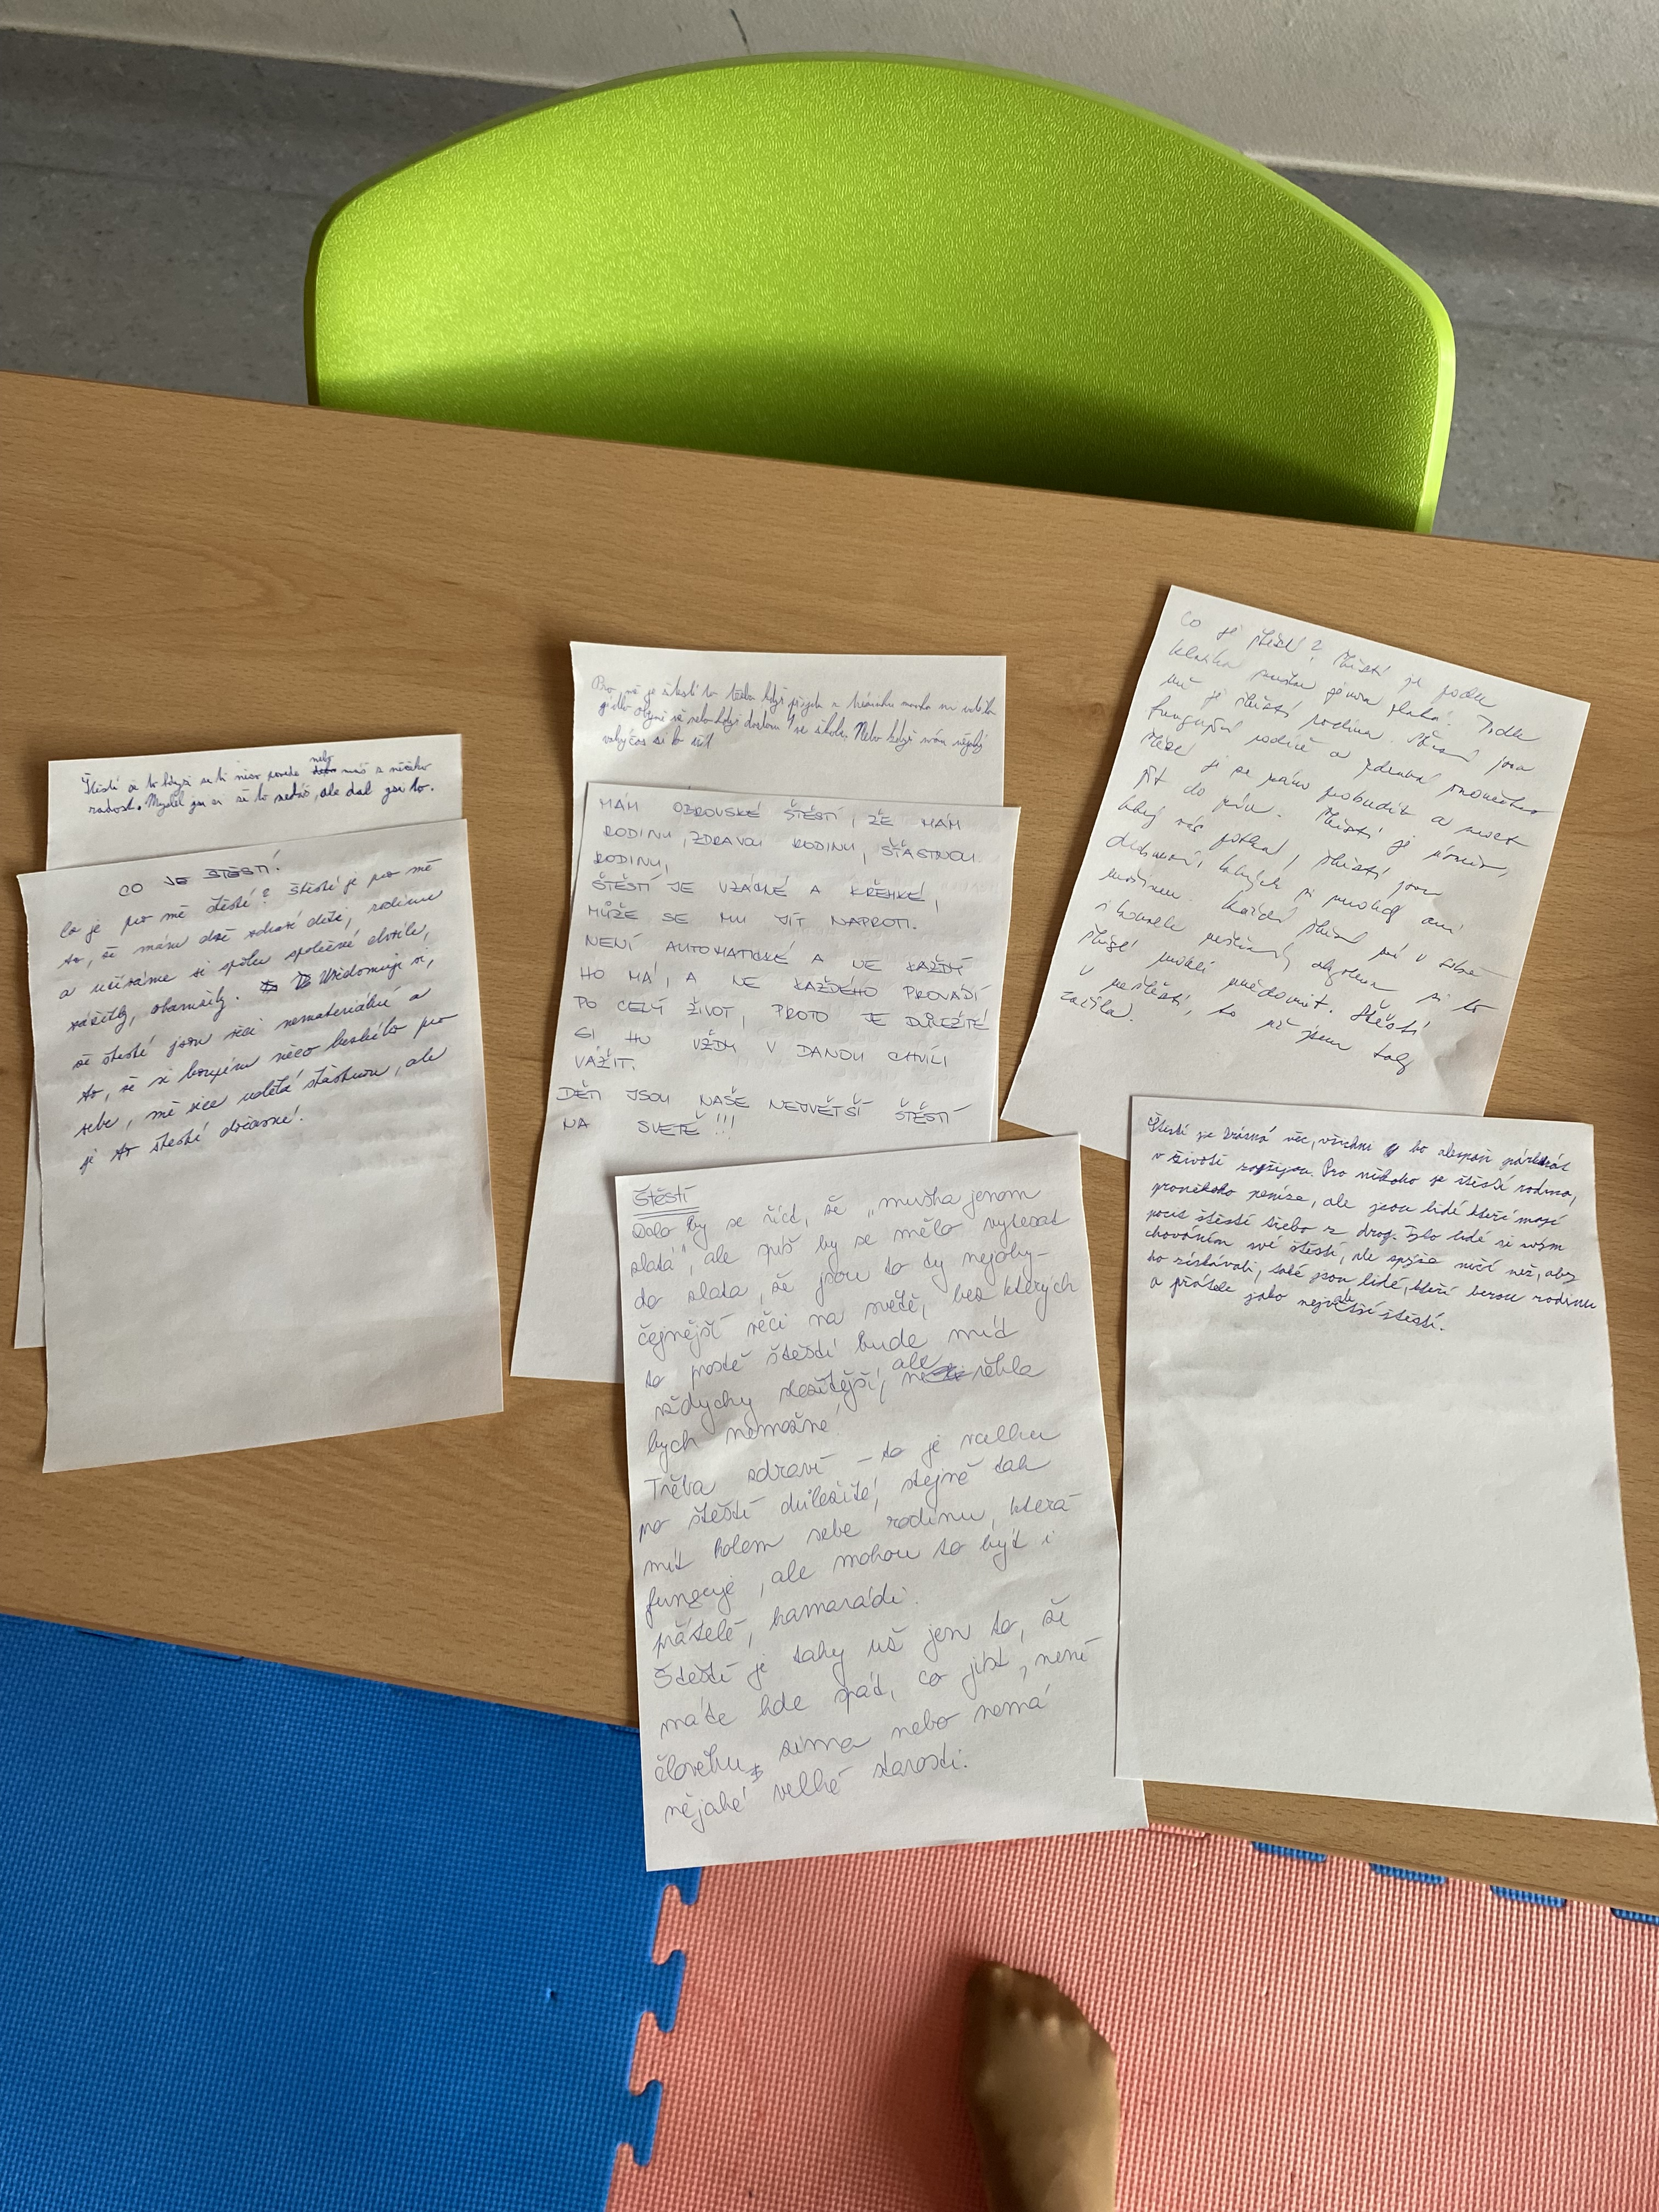 Štěstí je to když se ti něco povede nebo máš z něčeho
radost. Myslel jsem si že to nedáš, ale dal jsi to.
CO JE ŠTĚSTÍ?
Co je pro mě štěstí? Štěstí je pro mě
to, že mám dvě zdravé děti, rodinu
a užíváme si spolu společné chvíle,
zážitky, okamžiky. Uvědomuji si,
že štěstí jsou věci nemateriální a
to, že si koupím něco hezkého pro
sebe, mě sice udělá šťastnou, ale
je to štěstí dočasné!
Pro mě je štěstí to třeba když přijede z
jídlo nebo když dostanu 1 ve škole. Nebo když mám nějaký
volný čas si to užít
MÁM OBROVSKÉ ŠTĚSTÍ, ŽE MÁM
RODINU, ZDRAVOU RODINU, ŠŤASTNOU
RODINU,
ŠTĚSTÍ JE VZÁCNÉ A KŘEHKÉ,
MŮŽE SE MU JÍT NAPROTI.
NENÍ AUTOMATICKÉ A NE KAŽDÝ
HO MÁ, A NE KAŽDÉHO PROVÁZÍ
PO CELÝ ŽIVOT, PROTO JE DŮLEŽITÉ
SI HO VŽDY V DANOU CHVÍLI
VÁŽIT.
DĚTI JSOU NAŠE NEJVĚTŠÍ ŠTĚSTÍ
NA SVĚTĚ !!!
Štěstí
Dalo by se říct, že „muška jenom
zlatá", ale spíš by se mělo vytesat
do zlata, že jsou to ty nejoby-
čejnější věci na světě, bez kterých
to prostě štěstí bude mít
vždycky složitější, ale neřekla
bych nemožné!
Třeba zdraví – to je vallku
po štěstí důležité, stejně tak
mít kolem sebe rodinu, která
funguje, ale mohou to být i
přátelé, kamarádi.
Štěstí je taky už jen to, že
máte kde spát, co jíst, není
člověku zima nebo nemá
nějaké velké starosti.
Co je štěstí? Štěstí je podle
klasika muška jenom zlatá. Podle
mě je štěstí rodina. Štěstí jsou
fungující rodiče a zdravá
Štěstí je se ráno probudit a moct
jít do práce. Štěstí je úsměv,
který vás potká, štěstí jsou
drobnosti, kterých si mnohdy ani
nevšimneme. Každé štěstí má v sobě
i kousek neštěstí, abychom si to
štěstí uměli uvědomit. Štěstí
v neštěstí, to už jsem taky
zažila.
Štestí je krásná věc, všichni to alespoň párkrát
v životě zažijou. Pro někoho je štěstí rodina,
proněkoho peníze, ale jsou lidé kteří mají
pocit štěstí třeba z drog. Tyto lidé si svým
chováním své štěstí, ale spíše ničí než, aby
ho získávali, také jsou lidé, kteří berou rodinu
a přátele jako největší štěstí.